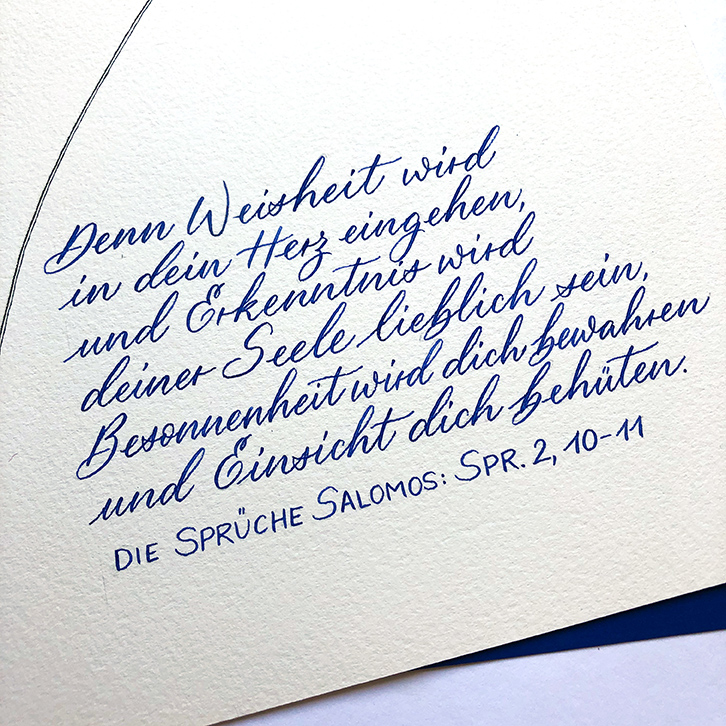 Denn Weisheit wird
in dein Herz eingehen,
und Erkenntnis wird
deiner Seele lieblich sein,
Besonnenheit wird dich bewahren
und Einsicht dich behüten.
DIE SPRÜCHE SALOMOS: SPR. 2, 10-11